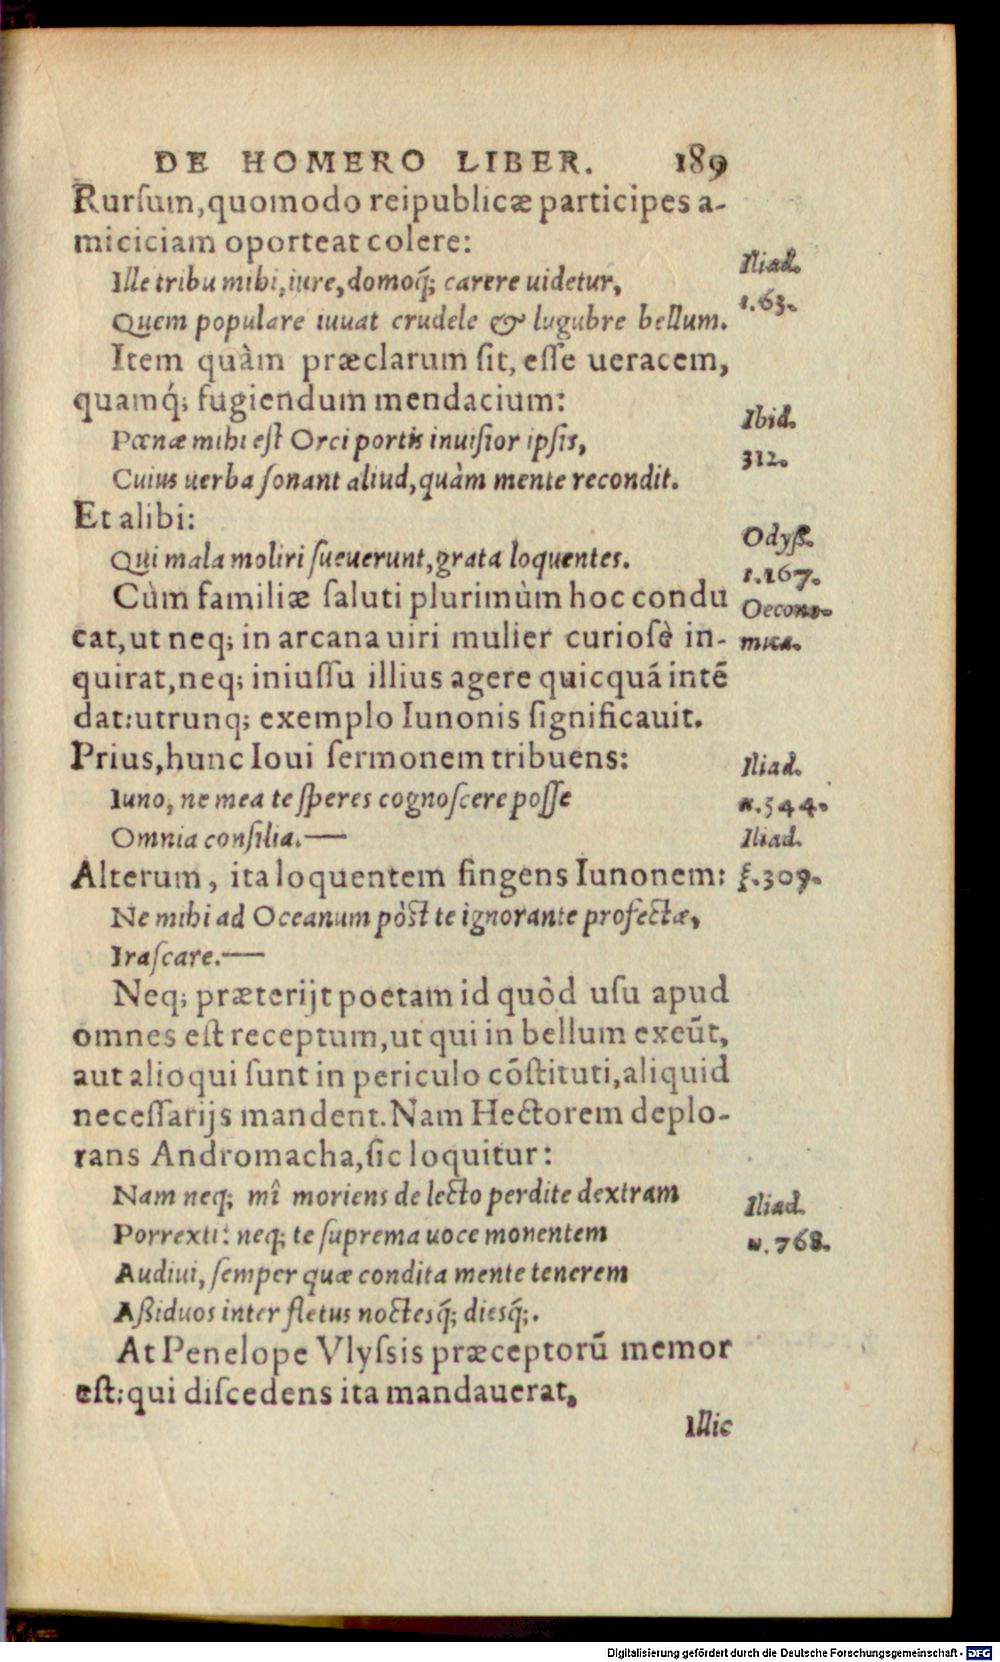 DE HOMERO LIBER. 189
Rurſum, quomodo reipublicæ participes a-
miciciam oporteat colere:
Ille tribu mihi, iure, domoq́; carere uidetur,
Iliad.
ι.63.
Quem populare iuuat crudele & lugubre bellum.
Item quàm præclarum ſit, eſſe ueracem,
quamq́; fugiendum mendacium:
Ibid.
Pœnæ mihi eſt Orci portis inuiſior ipſis,
312.
Cuius uerba ſonant aliud, quàm mente recondit.
Et alibi:
Odyß.
Qui mala moliri ſueuerunt, grata loquentes.
ς.167.
Cùm familiæ ſaluti plurimùm hoc condu
Oecono-
cat, ut neq; in arcana uiri mulier curioſè in-
mica.
quirat, neq; iniuſſu illius agere quicquã intẽ
dat: utrunq; exemplo Iunonis ſignificauit.
Prius, hunc Ioui ſermonem tribuens:
Iliad.
Iuno, ne mea te ſperes cognoſcere poſſe
α.544.
Omnia conſilia.—
Iliad.
Alterum, ita loquentem fingens Iunonem:
ξ.309.
Ne mihi ad Oceanum pòst te ignorante profectæ,
Iraſcare.—
Neq; præterijt poetam id quòd uſu apud
omnes eſt receptum, ut qui in bellum exeũt,
aut alioqui ſunt in periculo cõſtituti, aliquid
neceſſarijs mandent. Nam Hectorem deplo-
rans Andromacha, ſic loquitur:
Nam neq; mî moriens de lecto perdite dextram
Iliad.
Porrexti: neq; te ſuprema uoce monentem
ω.768.
Audiui, ſemper quæ condita mente tenerem
Aßiduos inter fletus noctesq́; diesq́;.
At Penelope Vlyſsis præceptorũ memor
eſt: qui diſcedens ita mandauerat,
Illic
Digitalisierung gefördert durch die Deutsche Forschungsgemeinschaft - DFG